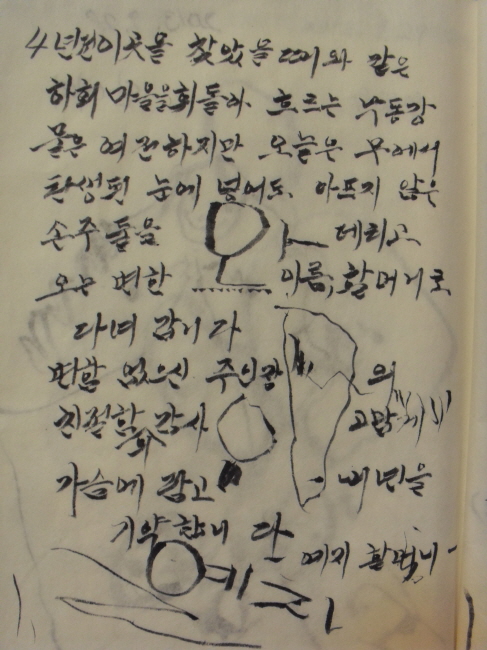 4년전이곳을 찾았을때와 같은
하회마을을휘돌아 흐르는 낙동강
물은 여전하지만 오늘은 무에서
탄생된 눈에 넣어도 아프지 않은
손주들을 데리고
오는 변한 이름; 할머니로
다녀 갑니다
변함 없으신 주인장 의
친절함 감사 고맙게
가슴에 담고 내년을
기약합니다
예지 할머니
예지